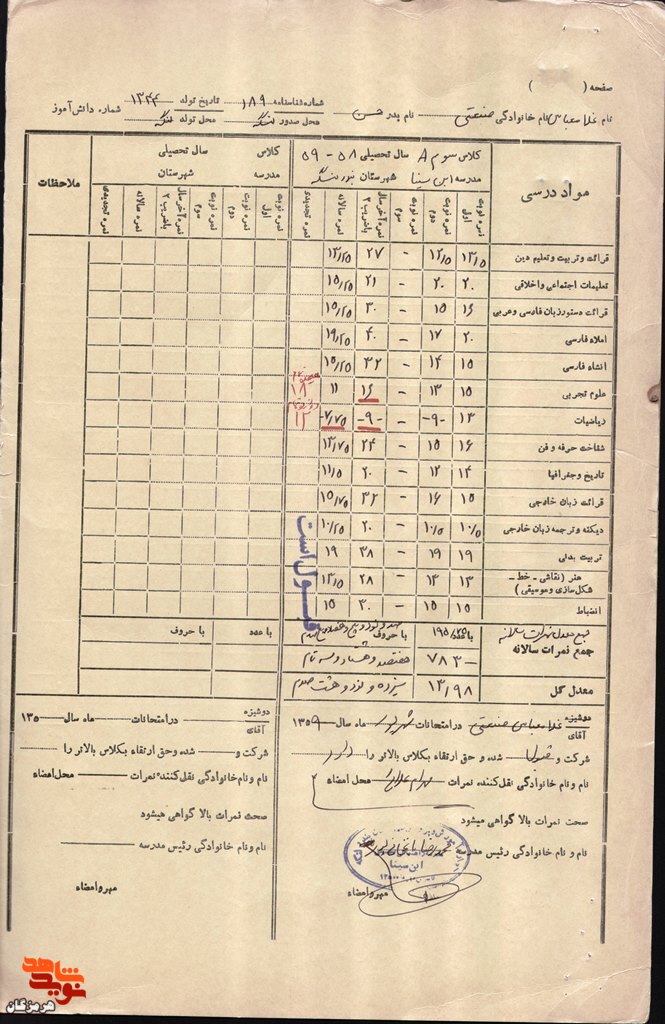 صفحه ( )
نام غلامعباس نام خانوادگی صنعتی نام پدر حسن شماره شناسنامه ۱۸۹ تاریخ تولد ۱۳۴۴ شماره دانش‌آموز
محل صدور لنگه محل تولد لنگه
مواد درسی
کلاس سوم A سال تحصیلی ۵۸ - ۵۹
مدرسه ابن سینا شهرستان بندرلنگه
نمره نوبت اول نمره نوبت دوم نمره نوبت سوم نمره آخر سال باضریب ۲ نمره سالانه نمره تجدیدی
کلاس سال تحصیلی
مدرسه شهرستان
نمره نوبت اول نمره نوبت دوم نمره نوبت سوم نمره آخر سال باضریب ۲ نمره سالانه نمره تجدیدی
ملاحظات
قرائت و تربیت و تعلیم دین ۱۳/۵ ۱۲/۵ - ۲۷ ۱۳/۲۵
تعلیمات اجتماعی و اخلاقی ۲۰ ۲۰ - ۲۱ ۱۵/۲۵
قرائت دستور زبان فارسی و عربی ۱۶ ۱۵ - ۳۰ ۱۵/۲۵
املاء فارسی ۲۰ ۱۷ - ۴۰ ۱۹/۲۵
انشاء فارسی ۱۵ ۱۴ - ۳۲ ۱۵/۲۵
علوم تجربی ۱۵ ۱۳ - ۱۶ ۱۱ هیجده تمام ۱۸
ریاضیات ۱۳ -۹- - -۹- -۷/۷۵- دوازده تمام ۱۲
شناخت حرفه و فن ۱۶ ۱۵ - ۲۴ ۱۳/۷۵
تاریخ و جغرافیا ۱۴ ۱۲ - ۲۰ ۱۱/۵
قرائت زبان خارجی ۱۵ ۱۶ - ۳۲ ۱۵/۷۵
دیکته و ترجمه زبان خارجی ۱۰/۵ ۱۰/۵ - ۲۰ ۱۰/۲۵
تربیت بدنی ۱۹ ۱۹ - ۳۸ ۱۹
هنر (نقاشی - خط - شکل‌سازی و موسیقی) ۱۳ ۱۳ - ۲۸ ۱۳/۵
انضباط ۱۵ ۱۵ - ۳۰ ۱۵
قبول است
جمع معدل نمرات سالانه
جمع نمرات سالانه
با عدد ۱۹۵/۷۵ با حروف
۷۸۳- هفتصد و هشتاد و سه تمام
با عدد با حروف
معدل کل ۱۳/۹۸ سیزده و نود و هشت صدم
دوشیزه
آقای غلامعباس صنعتی در امتحانات شهریور ماه سال ۱۳۵۹
شرکت و قبول شده و حق ارتقاء بکلاس بالاتر را دارد
نام و نام خانوادگی نقل کننده نمرات محل امضاء
صحت نمرات بالا گواهی میشود
نام و نام خانوادگی رئیس مدرسه
ابن سینا
مهر و امضاء
دوشیزه
آقای در امتحانات ماه سال ۱۳۵
شرکت و شده و حق ارتقاء بکلاس بالاتر را
نام و نام خانوادگی نقل کننده نمرات محل امضاء
صحت نمرات بالا گواهی میشود
نام و نام خانوادگی رئیس مدرسه
مهر و امضاء
نوید شاهد
هرمزگان